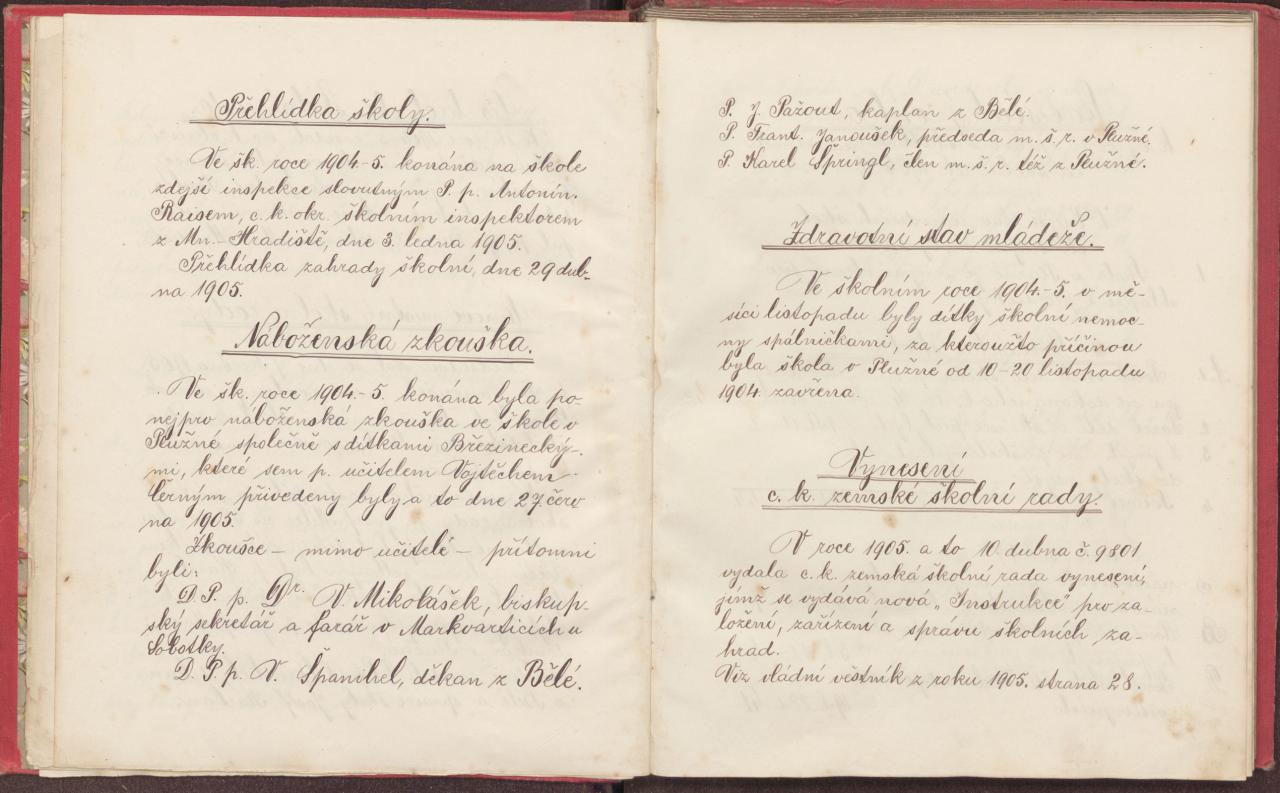 Přehlídka školy.
Ve šk. roce 1904-5. konána na škole
zdejší inspekce slovutným P. p. Antonín.
Raisem, c. k. okr. školním inspektorem
z Mn.- Hradiště, dne 3. ledna 1905.
Přehlídka zahrady školní, dne 29 dub-
na 1905.
Náboženská zkouška.
Ve šk. roce 1904.-5. konána byla po-
nejprv náboženská zkouška ve škole v
Plužné společně s dítkami Březinecký-
mi, které sem p. učitelem Vojtěchem
Černým přivedeny byly a to dne 27. červ
na 1905.
Zkoušce - mimo učitelé - přítomni
byli:
D. P. p. Dr. V. Mikolášek, biskup-
ský sekretář a farář v Markvarticích u
Sobotky.
D. P. p. V. Španihel, děkan z Bělé.
P. J. Pažout, kaplan z Bělé.
P. Frant. Janoušek, předseda m. š. r. v Plužné.
P. Karel Špringl, člen m. š. r. též z Plužné.
Zdravotní stav mládeže.
Ve školním roce 1904.-5. v mě-
síci listopadu byly dítky školní nemoc-
ny spálničkami, za kteroužto příčinou
byla škola v Plužné od 10-20 listopadu
1904. zavřena.
Vynesení
c. k. zemské školní rady.
V roce 1905. a to 10. dubna č. 9801
vydala c. k. zemská školní rada vynesení,
jímž se vydává nová „Instrukce" pro za-
ložení, zařízení a správu školních za-
hrad.
Viz vládní věstník z roku 1905. strana 28.